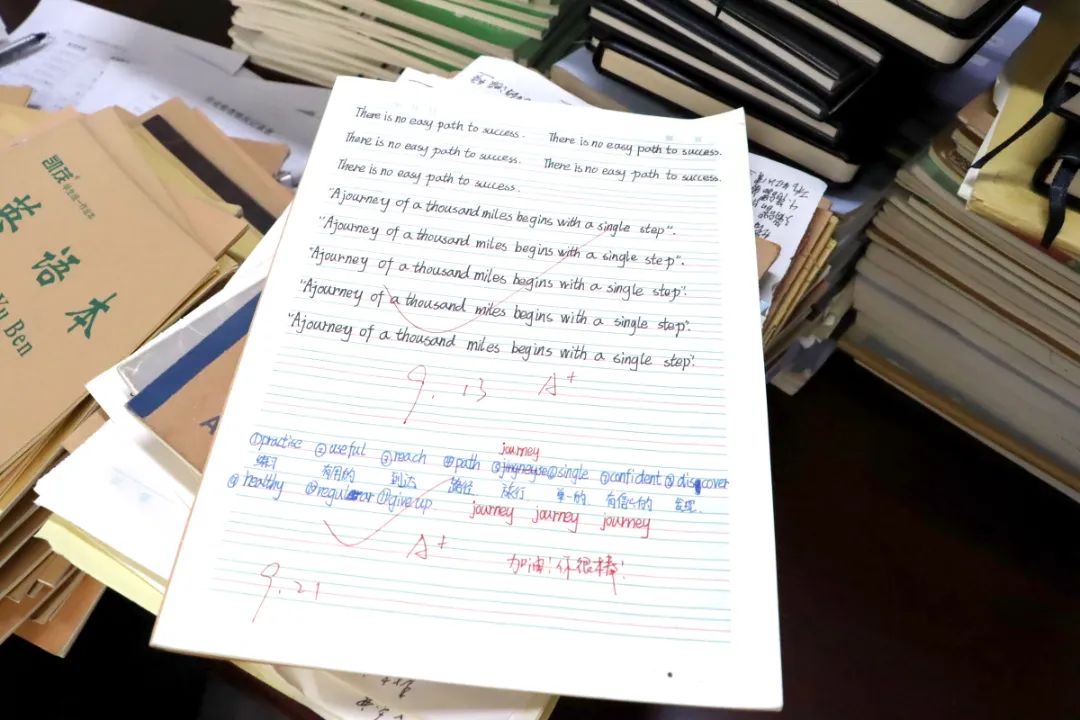 There is no easy path to success. There is no easy path to success.
There is no easy path to success. There is no easy path to success.
There is no easy path to success.
"A journey of a thousand miles begins with a single step".
"A journey of a thousand miles begins with a single step".
"A journey of a thousand miles begins with a single step".
"A journey of a thousand miles begins with a single step".
"A journey of a thousand miles begins with a single step".
9.13 A+
journey
①practise ②useful ③reach ④path ⑤ ⑥single ⑦confident ⑧discover
练习 有用的 到达 路径 旅行 单一的 有信心的 发现
⑨healthy ⑩regular ⑪give up journey journey journey
A+ 加油!你很棒!
9.21
凯茂
英语本
Yu Ben